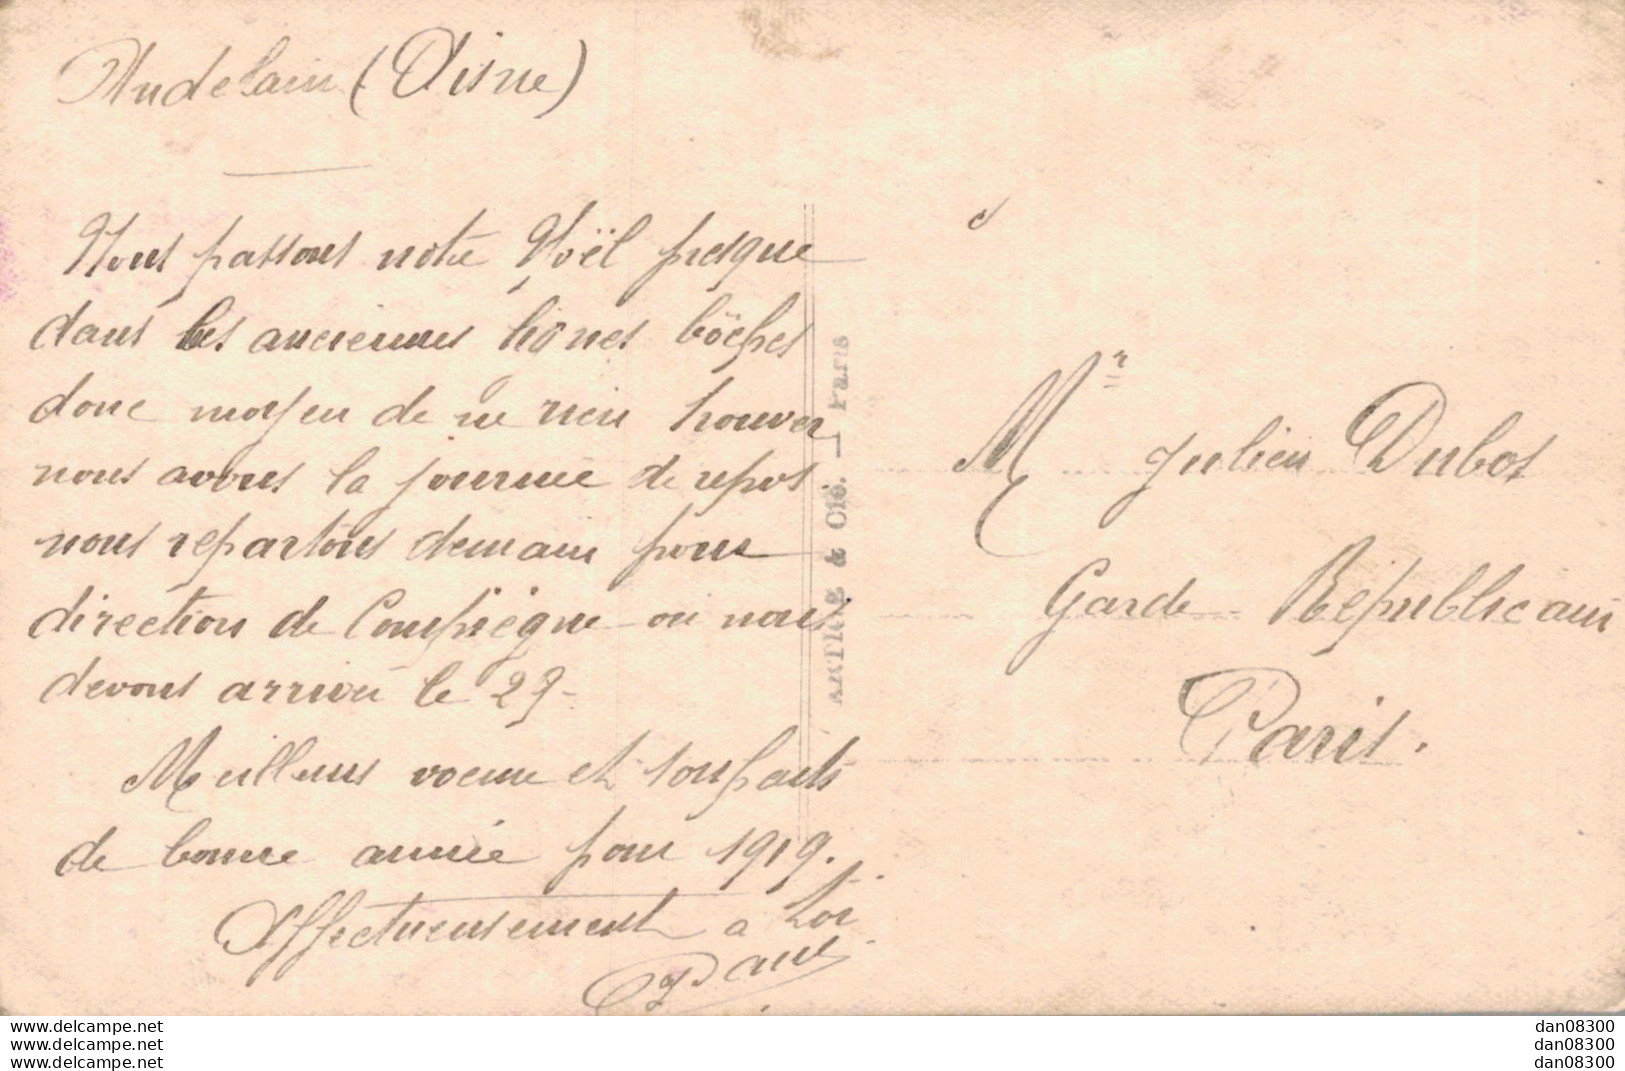 Andelain (Aisne)
Nous passons notre Noël presque
dans les anciennes lignes böches
donc moyen de ne rien trouver
nous avons la journée de repos.
nous repartons demain pour
direction de Compiègne ou nous
devons arrivé le 29-
Meilleurs voeux et souhaits
de bonne année pour 1919.
Affectueusement a toi
Paul
& Cie. — Paris
Mr Julien Dubos
Garde Républicain
Paris.
www.delcampe.net
www.delcampe.net
www.delcampe.net
dan08300
dan08300
dan08300